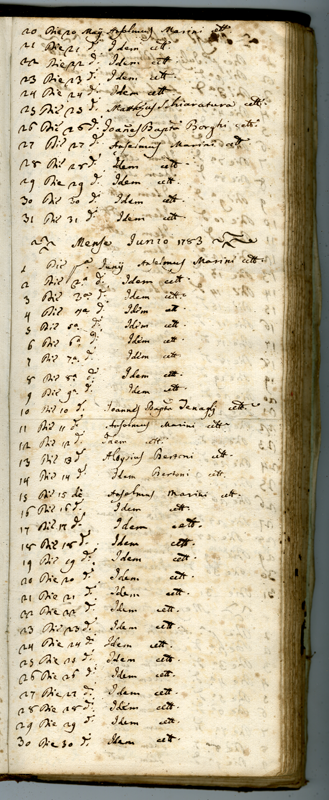 20 Die 20 Maÿ Anselmus Marini cett.
21 Die 21 d. Idem cett.
22 Die 22 d. Idem cett.
23 Die 23 d. Idem cett.
24 Die 24 d. Idem cett.
25 Die 25 d. Schiaratura cett.
26 Die 26 d. Joañes Bapta Borghi cett.
27 Die 27 d. Anselmus Marini cett.
28 Die 28 d. Idem cett.
29 Die 29 d. Idem cett.
30 Die 30 d. Idem cett.
31 Die 31 d. Idem cett.
Mense Junio 1783
1 Die Junÿ Anselmus Marini cett.
2 Die 2a d. Idem cett.
3 Die 3a d. Idem cett.
4 Die 4a d. Idem cett.
5 Die 5a d. Idem cett.
6 Die 6a d. Idem cett.
7 Die 7a d. Idem cett.
8 Die 8a d. Idem cett.
9 Die 9a d. Idem cett.
10 Die 10 d. Joannes Bapta cett.
11 Die 11 d. Anselmus Marini cett.
12 Die 12 d. Idem cett.
13 Die 13 d. Aloysius Bertoni cett.
14 Die 14 d. Idem Bertoni cett.
15 Die 15 d. Anselmus Marini cett.
16 Die 16 d. Idem cett.
17 Die 17 d. Idem cett.
18 Die 18 d. Idem cett.
19 Die 19 d. Idem cett.
20 Die 20 d. Idem cett.
21 Die 21 d. Idem cett.
22 Die 22 d. Idem cett.
23 Die 23 d. Idem cett.
24 Die 24 d. Idem cett.
25 Die 25 d. Idem cett.
26 Die 26 d. Idem cett.
27 Die 27 d. Idem cett.
28 Die 28 d. Idem cett.
29 Die 29 d. Idem cett.
30 Die 30 d. Idem cett.